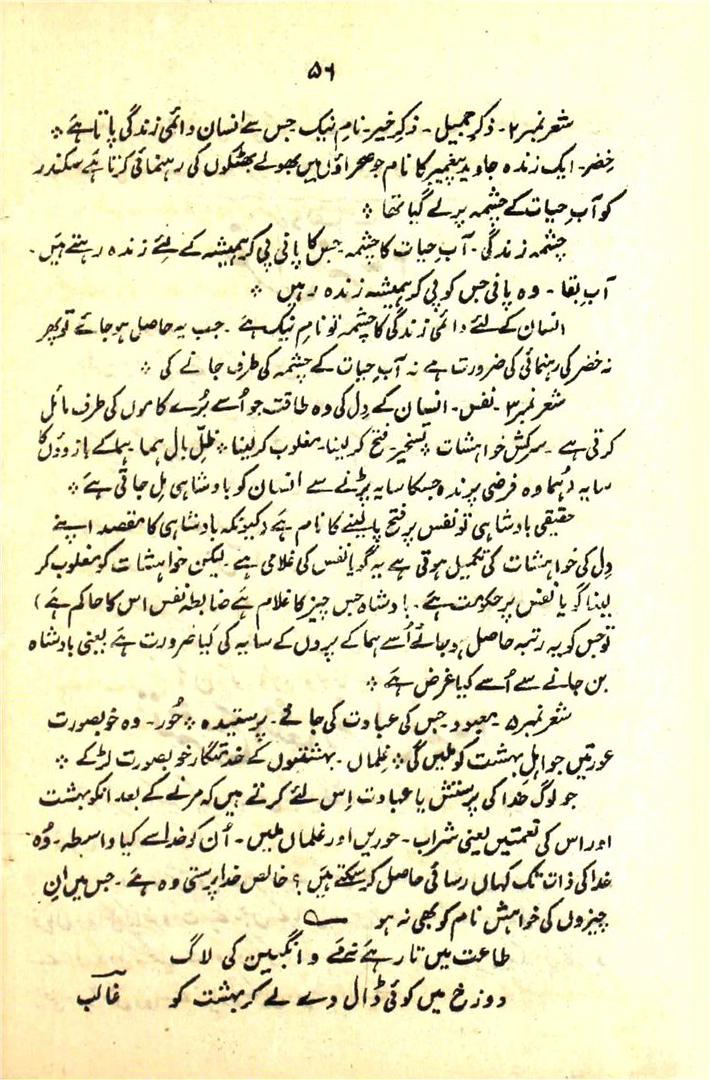 ۵۶
شعر نمبر ۲۔ ذکرِ جمیل۔ ذکرِ خیر۔ نامِ نیک جس سے انسان دائمی زندگی پاتا ہے ※
خِضر۔ ایک زندہ جاوید پیغمبر کا نام جو صحراؤں میں بھولے بھٹکوں کی رہنمائی کرتا ہے سکندر
کو آبِ حیات کے چشمہ پر لے گیا تھا ※
چشمہ زندگی۔ آبِ حیات کا چشمہ جس کا پانی پی کر ہمیشہ کے لئے زندہ رہتے ہیں۔
آبِ بقا۔ وہ پانی جس کو پی کر ہمیشہ زندہ رہیں ※
انسان کے لئے دائمی زندگی کا چشمہ تو نامِ نیک ہے۔ جب یہ حاصل ہو جائے تو پھر
نہ خضر کی رہنمائی کی ضرورت ہے نہ آبِ حیات کے چشمہ کی طرف جانے کی ※
شعر نمبر ۳۔ نفس۔ انسان کے دِل کی وہ طاقت جو اُسے بُرے کاموں کی طرف مائل
کرتی ہے۔ سرکش خواہشات ※ تسخیر۔ فتح کر لینا۔ مغلوب کر لینا ※ ظلِّ بالِ ہما۔ ہما کے بازوؤں کا
سایہ (ہُما وہ فرضی پرندہ جسکا سایہ پڑنے سے انسان کو بادشاہی مِل جاتی ہے ※
حقیقی بادشاہی تو نفس پر فتح پا لینے کا نام ہے (کیونکہ بادشاہی کا مقصد اپنے
دِل کی خواہشات کی تکمیل ہوتی ہے یہ گویا نفس کی غلامی ہے۔ لیکن خواہشات کو مغلوب کر
لینا گویا نفس پر حکومت ہے۔ بادشاہ جس چیز کا غلام ہے ضابطہ نفس اس کا حاکم ہے)
تو جس کو یہ رتبہ حاصل ہو جائے اُسے ہما کے پروں کے سایہ کی کیا ضرورت ہے یعنی بادشاہ
بن جانے سے اُسے کیا غرض ہے ※
شعر نمبر ۵۔ معبود جس کی عبادت کی جائے۔ پرستیدہ ※ حُور۔ وہ خوبصورت
عورتیں جو اہلِ بہشت کو ملیں گی ※ غِلماں۔ بہشتیوں کے خدمتگار خوبصورت لڑکے ※
جو لوگ خدا کی پرستش یا عبادت اِس لئے کرتے ہیں کہ مرنے کے بعد انکو بہشت
اور اس کی نعمتیں یعنی شراب۔ حوریں اور غلماں ملیں۔ اُن کو خدا سے کیا واسطہ۔ وُہ
خدا کی ذات تک کہاں رسائی حاصل کر سکتے ہیں؟ خالص خدا پرستی وہ ہے۔ جس میں اِن
چیزوں کی خواہش نام کو بھی نہ ہو
طاعت میں تا رہے نہ مے و انگبین کی لاگ
دوزخ میں کوئی ڈال دے لے کر بہشت کو غالب